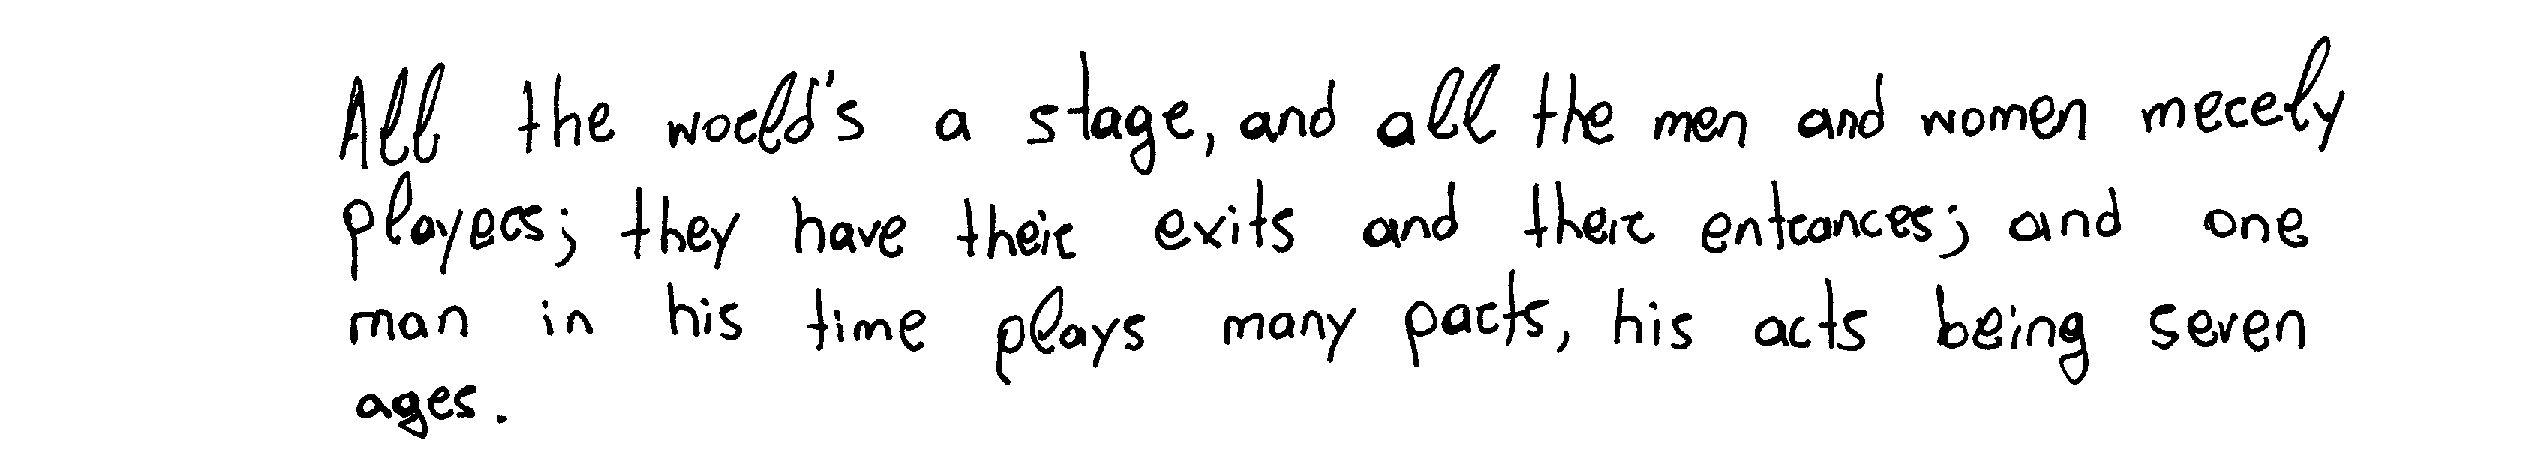 All the world's a stage, and all the men and women merely
players; they have their exits and their entrances; and one
man in his time plays many parts, his acts being seven
ages.